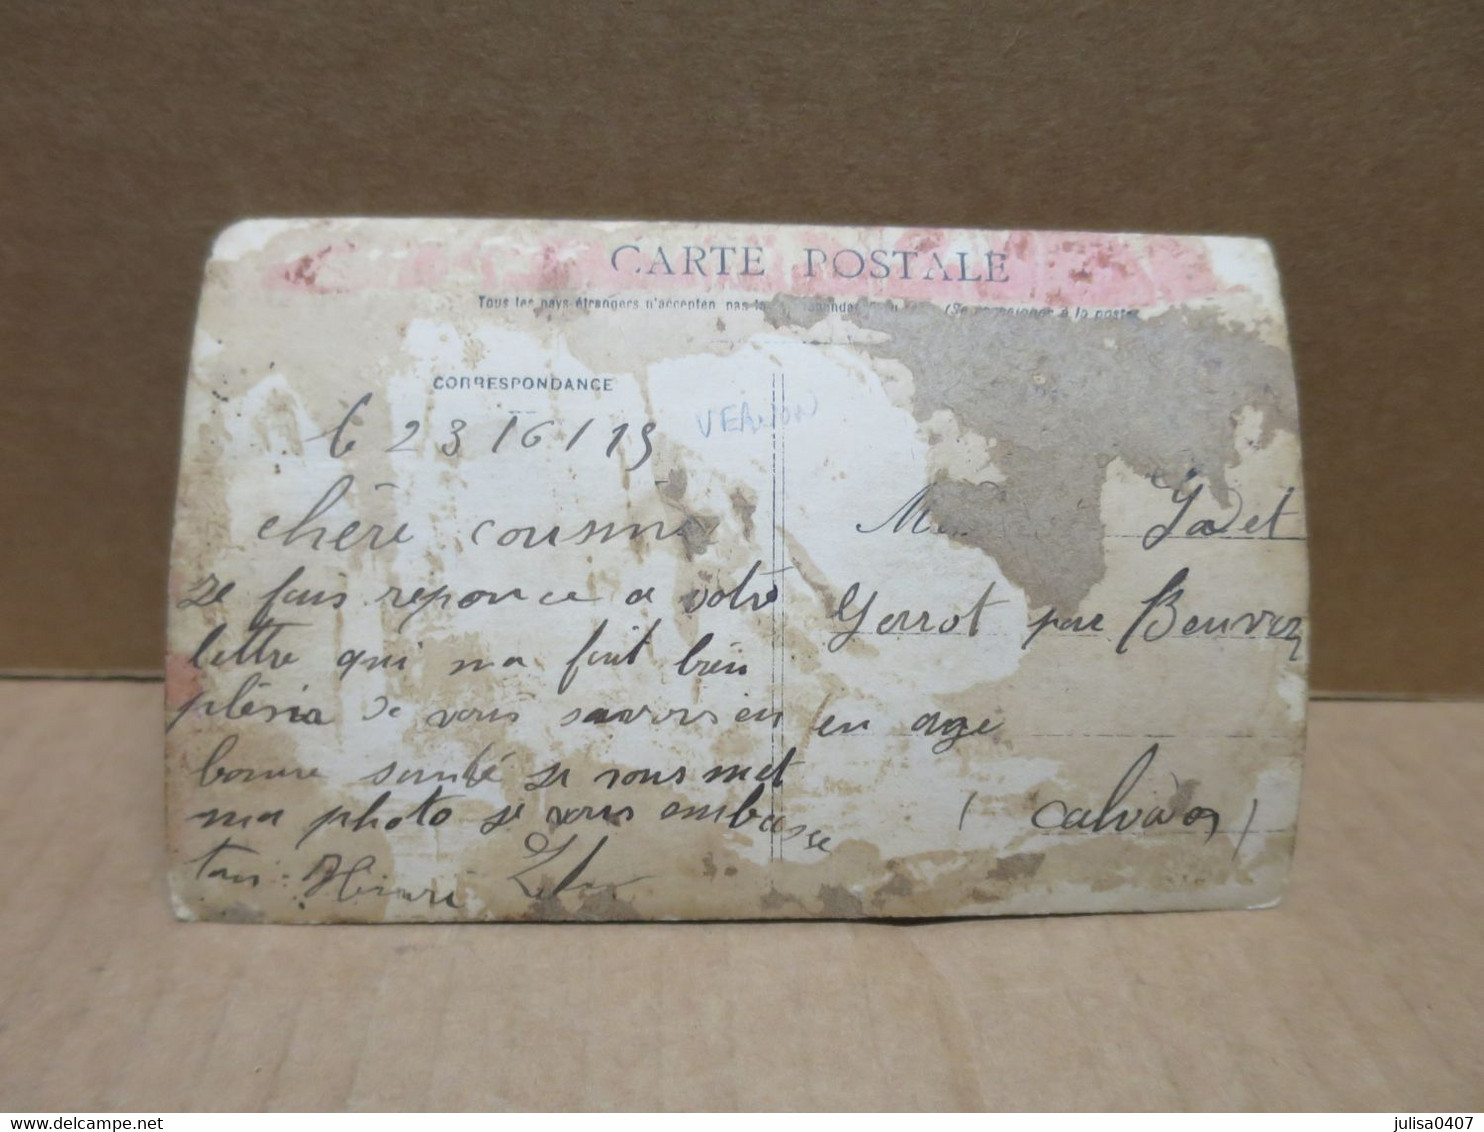 CARTE POSTALE
Tous les pays étrangers n'accepten pas la (Se renseigner à la poste
CORRESPONDANCE
le 23/6/15
VERNON
chère cousine
Je fais reponce a votre
lettre qui ma fait bien
plésir de vous savoir en
bonne santé je vous met
ma photo je vous embrasse
Henri
Jadet
par Beuvron
en auge
(calvados)
julisa0407